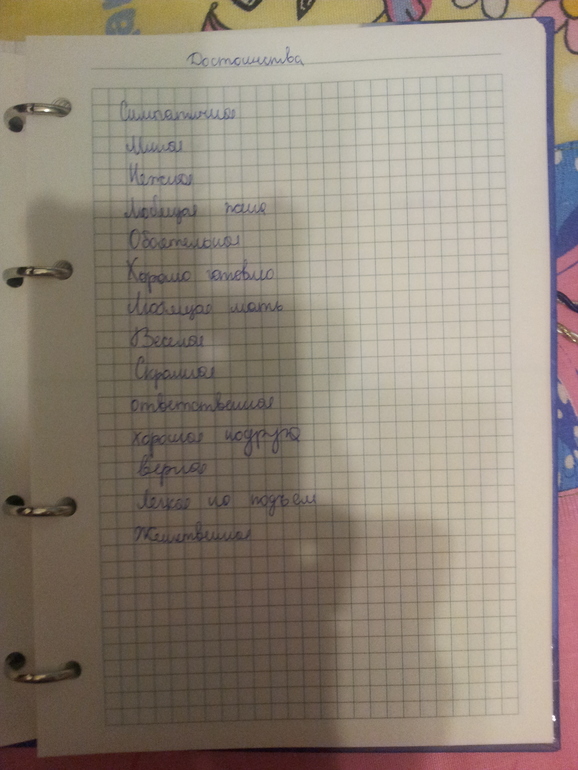 Достоинства
Симпатичная
Милая
Нежная
Любящая
Обаятельная
Хорошо готовлю
Любящая мать
Веселая
Скромная
ответственная
хорошая подруга
верная
легкая на подъем
Женственная